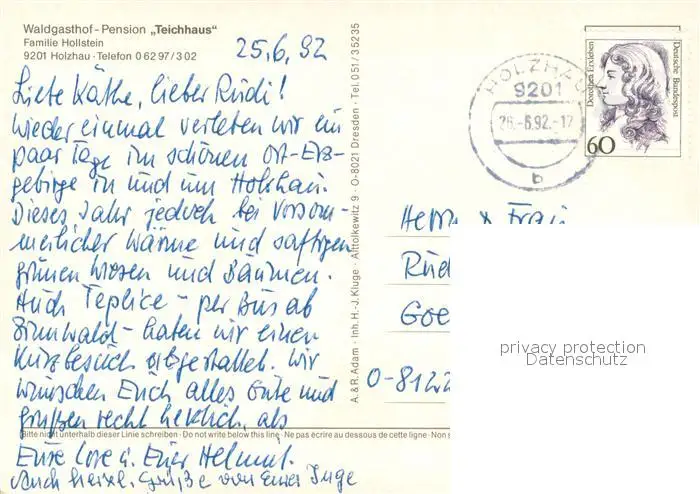 Waldgasthof - Pension „Teichhaus“
Familie Hollstein
9201 Holzhau · Telefon 0 62 97 / 3 02
25.6.92
Liebe Käthe, lieber Rudi!
Wieder einmal verleben wir ein
paar Tage im schönen Ost-Erz-
gebirge in und um Holzhau.
Dieses Jahr jedoch bei vorsom-
merlicher Wärme und saftigen
grünen Wiesen und Bäumen.
Auch Teplice - per Bus ab
Zinnwald - haben wir einen
Kurzbesuch abgestattet. Wir
wünschen Euch alles Gute und
grüßen recht herzlich, als
Bitte nicht unterhalb dieser Linie schreiben · Do not write below this line · Ne pas écrire au dessous de cette ligne · Non s
Eure Lore u. Euer Helmut.
Auch herzl. Grüße von Eurer Inge
A. & R. Adam · Inh. H.-J. Kluge · Alttolkewitz 9 · O-8021 Dresden · Tel. 051 / 35235
HOLZHAU
9201
26.-6.92.-17
b
Dorothea Erxleben
Deutsche Bundespost
60
Herrn u. Frau
Rud
Goe
O-8122
privacy protection
Datenschutz